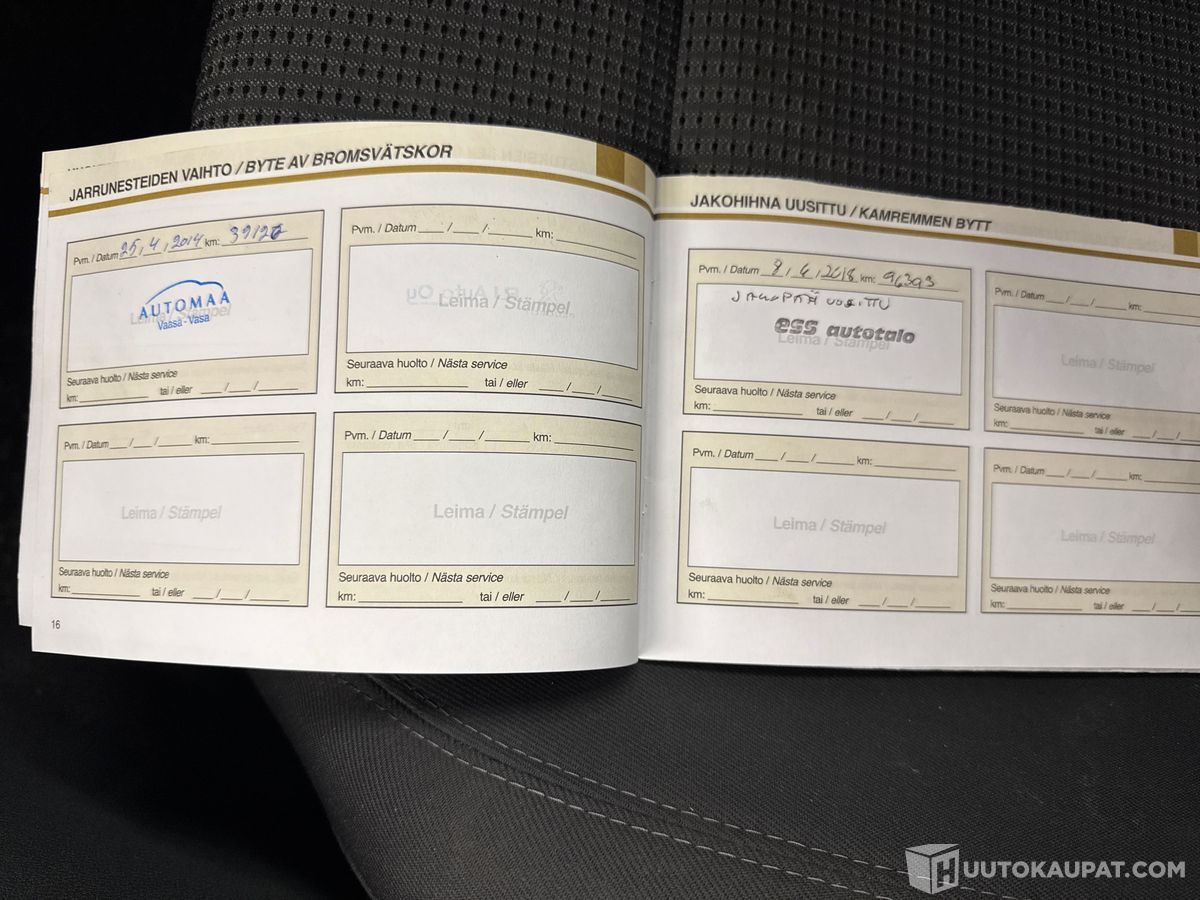 JARRUNESTEIDEN VAIHTO / BYTE AV BROMSVÄTSKOR
Pvm. / Datum 25, 4, 2014 km: 39126
AUTOMAA
Leima / Stämpel
Vaasa - Vasa
Seuraava huolto / Nästa service
km: ________ tai / eller ___/___/______
Pvm. / Datum ___/___/______ km: ________
Leima / Stämpel
Seuraava huolto / Nästa service
km: ________ tai / eller ___/___/______
Pvm. / Datum ___/___/______ km: ________
Leima / Stämpel
Seuraava huolto / Nästa service
km: ________ tai / eller ___/___/______
Pvm. / Datum ___/___/______ km: ________
Leima / Stämpel
Seuraava huolto / Nästa service
km: ________ tai / eller ___/___/______
16
JAKOHIHNA UUSITTU / KAMREMMEN BYTT
Pvm. / Datum 8, 6, 2018 km: 96393
JAKOPÄÄ UUSITTU
ess autotalo
Leima / Stämpel
Seuraava huolto / Nästa service
km: ________ tai / eller ___/___/______
Pvm. / Datum ___/___/______ km:
Leima / Stämpel
Seuraava huolto / Nästa service
km: ________ tai / eller ___/___/
Pvm. / Datum ___/___/______ km: ________
Leima / Stämpel
Seuraava huolto / Nästa service
km: ________ tai / eller ___/___/______
Pvm. / Datum ___/___/______ km:
Leima / Stämpel
Seuraava huolto / Nästa service
km: ________ tai / eller ___/___/
HUUTOKAUPAT.COM